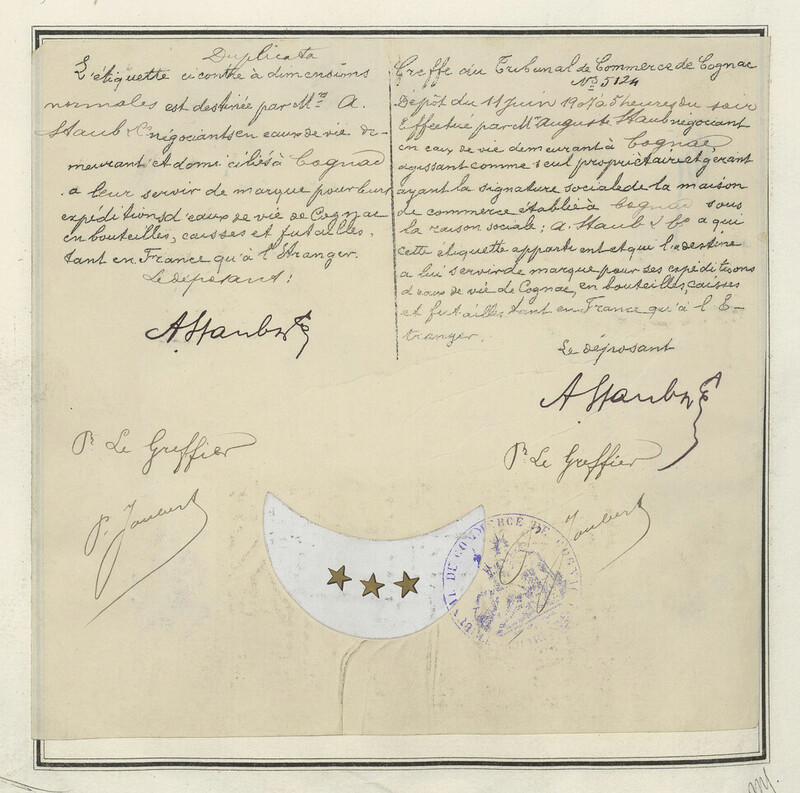 Duplicata
L'étiquette ci contre à dimensions
normales est destinée par Mrs A.
Staub & Co négociants en eaux de vie de-
meurant et domiciliés à Cognac
a leur servir de marque pour leurs
expéditions d'eaux de vie de Cognac
en bouteilles, caisses et futailles,
tant en France qu'à l'Etranger.
Le déposant:
A. Staub & Co
Pr Le Greffier
P. Joubert
Greffe du Tribunal de Commerce de Cognac
No 5124
Dépôt du 11 Juin 1907 à 5 heures du soir
Effectué par Mr Auguste Staub négociant
en eaux de vie demeurant à Cognac,
agissant comme seul propriétaire et gérant
ayant la signature sociale de la maison
de commerce établie à Cognac sous
la raison sociale; A. Staub & Co a qui
cette étiquette appartient et qui l'a destine
a lui servir de marque pour ses expéditions
d'eaux de vie de Cognac, en bouteilles, caisses
et futailles tant en France qu'à l'E-
tranger.
Le déposant
A Staub & Co
Pr Le Greffier
Joubert
TRIBUNAL DE COMMERCE DE COGNAC